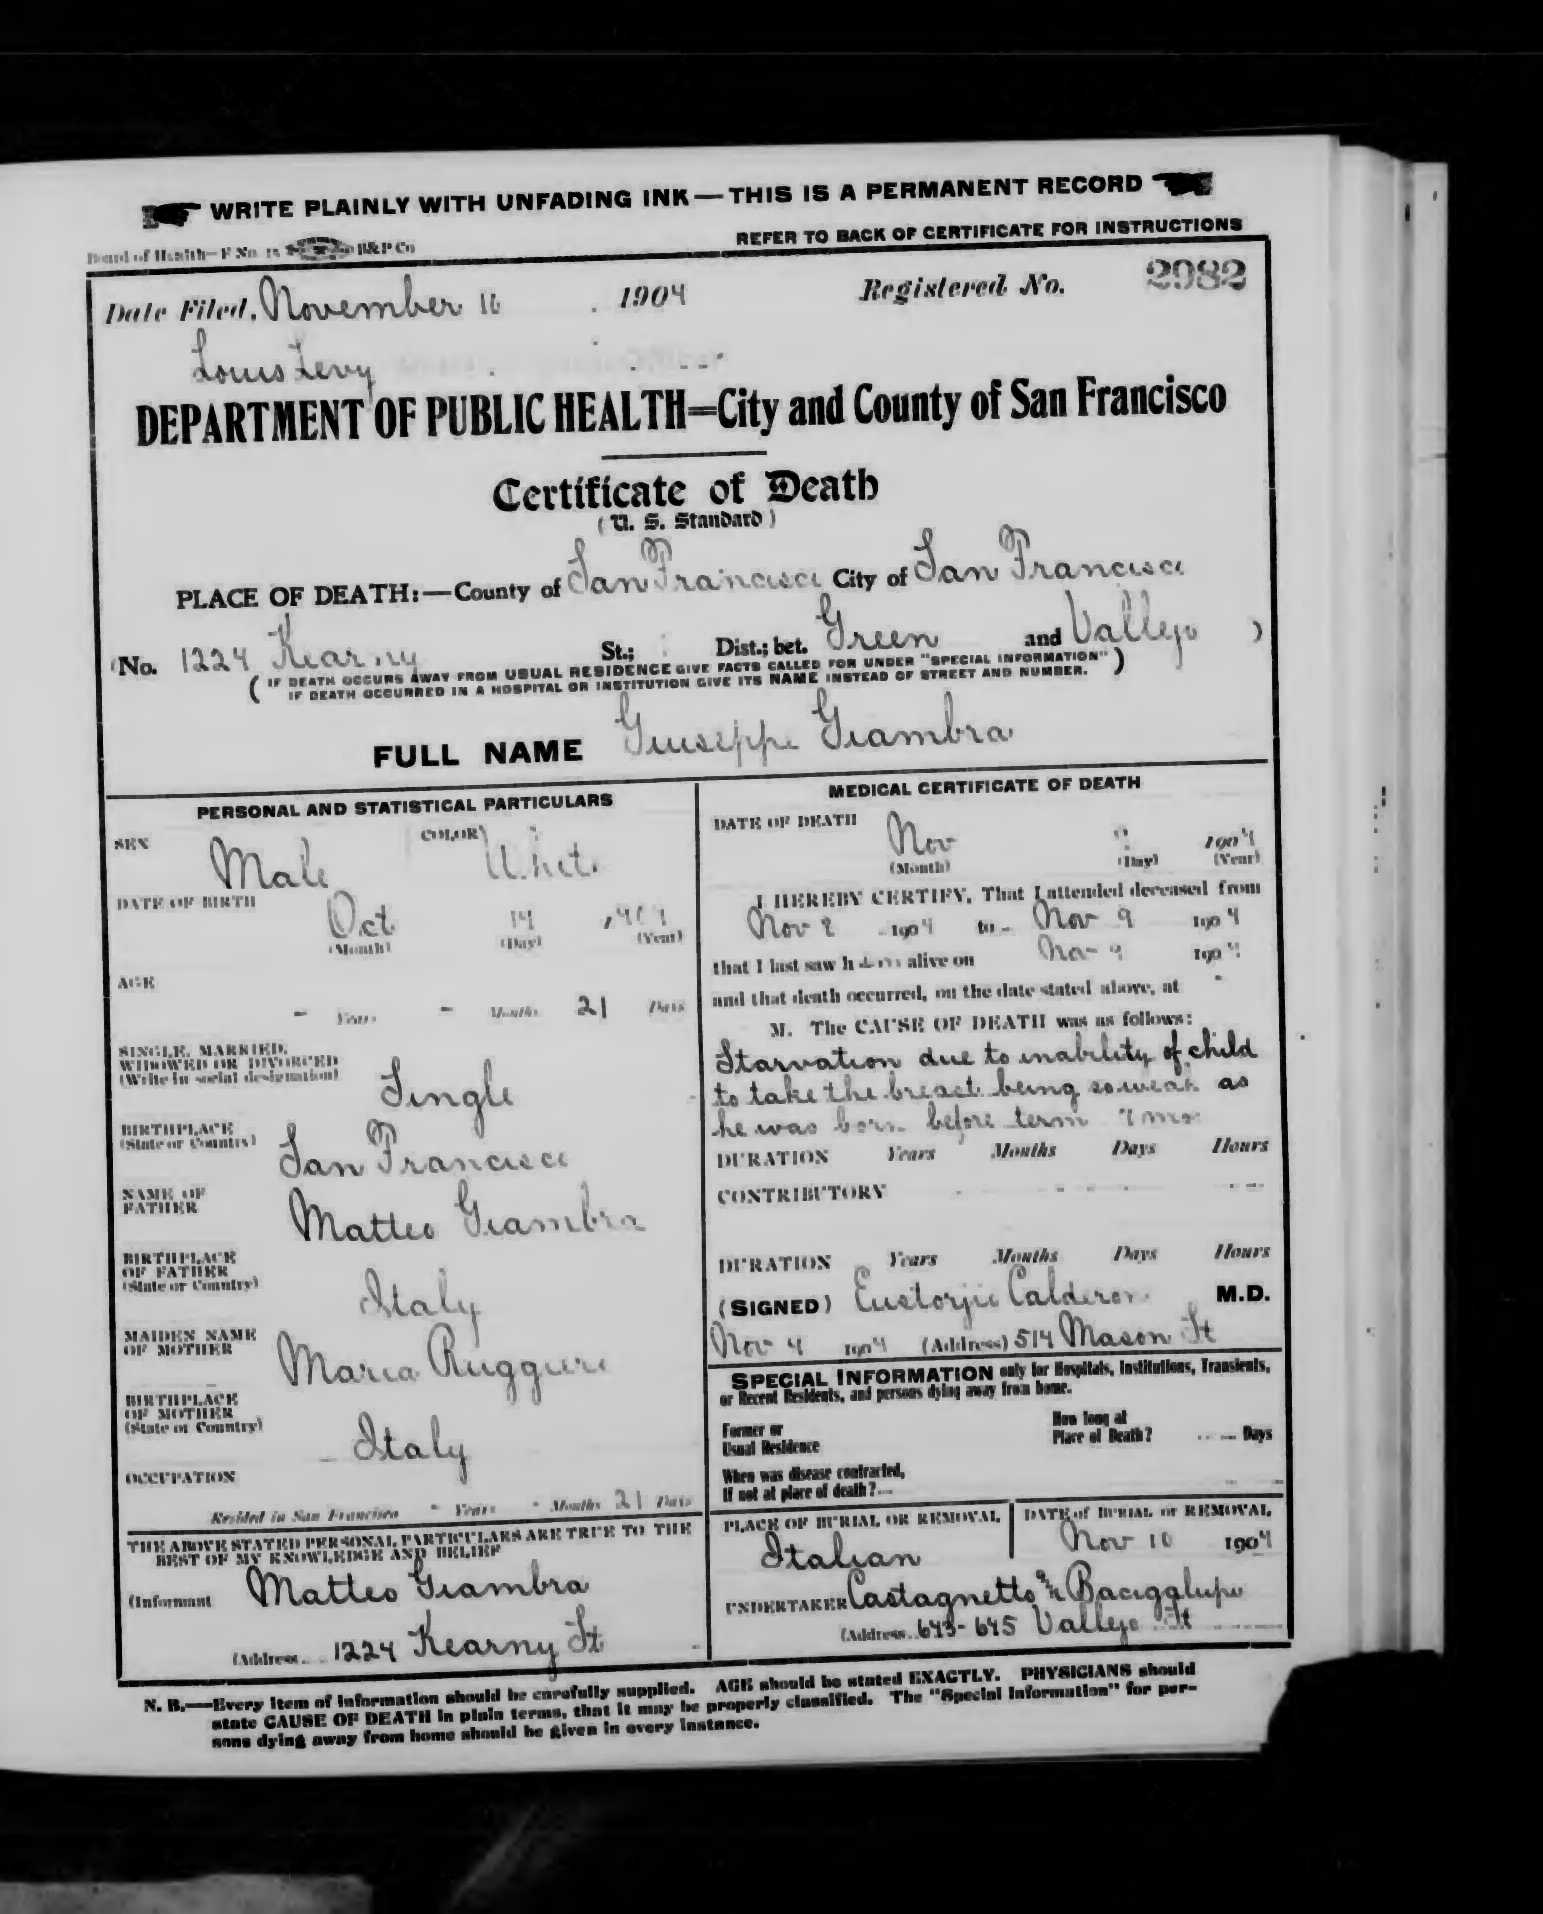 WRITE PLAINLY WITH UNFADING INK — THIS IS A PERMANENT RECORD
Board of Health—F No. 15 B&P Co
REFER TO BACK OF CERTIFICATE FOR INSTRUCTIONS
Date Filed, November 16 1904 Registered No. 2982
Louis Levy
DEPARTMENT OF PUBLIC HEALTH=City and County of San Francisco
Certificate of Death
(U. S. Standard)
PLACE OF DEATH:—County of San Francisco City of San Francisco
(No. 1224 Kearny St.; Dist.; bet. Green and Vallejo )
( IF DEATH OCCURS AWAY FROM USUAL RESIDENCE GIVE FACTS CALLED FOR UNDER "SPECIAL INFORMATION" )
IF DEATH OCCURRED IN A HOSPITAL OR INSTITUTION GIVE ITS NAME INSTEAD OF STREET AND NUMBER.
FULL NAME Giuseppe Giambra
PERSONAL AND STATISTICAL PARTICULARS
SEX Male COLOR White
DATE OF BIRTH Oct 19 , 1904
(Month) (Day) (Year)
AGE
- Years - Months 21 Days
SINGLE, MARRIED,
WIDOWED OR DIVORCED
(Write in social designation) Single
BIRTHPLACE
(State or Country) San Francisco
NAME OF
FATHER Matteo Giambra
BIRTHPLACE
OF FATHER
(State or Country) Italy
MAIDEN NAME
OF MOTHER Maria Ruggieri
BIRTHPLACE
OF MOTHER
(State or Country) Italy
OCCUPATION
Resided in San Francisco - Years - Months 21 Days
THE ABOVE STATED PERSONAL PARTICULARS ARE TRUE TO THE
BEST OF MY KNOWLEDGE AND BELIEF
(Informant Matteo Giambra
(Address 1224 Kearny St
MEDICAL CERTIFICATE OF DEATH
DATE OF DEATH Nov 9 1904
(Month) (Day) (Year)
I HEREBY CERTIFY, That I attended deceased from
Nov 8 1904 to Nov 9 1904
that I last saw h im alive on Nov 9 1904
and that death occurred, on the date stated above, at
M. The CAUSE OF DEATH was as follows:
Starvation due to inability of child
to take the breast being so weak as
he was born before term mo
DURATION Years Months Days Hours
CONTRIBUTORY
DURATION Years Months Days Hours
(SIGNED) Eustorjio Calderon M.D.
Nov 9 1904 (Address) 514 Mason St
SPECIAL INFORMATION only for Hospitals, Institutions, Transients,
or Recent Residents, and persons dying away from home.
Former or
Usual Residence
How long at
Place of Death? Days
When was disease contracted,
If not at place of death?
PLACE OF BURIAL OR REMOVAL
Italian
DATE of BURIAL or REMOVAL
Nov 10 1904
UNDERTAKER Castagnetto & Bacigalupo
(Address 643-645 Vallejo St
N. B.—Every item of information should be carefully supplied. AGE should be stated EXACTLY. PHYSICIANS should
state CAUSE OF DEATH in plain terms, that it may be properly classified. The "Special Information" for per-
sons dying away from home should be given in every instance.